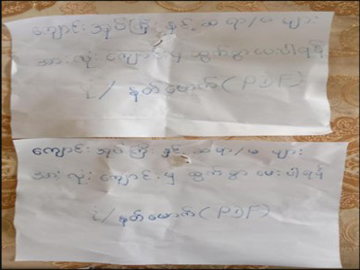 ကျောင်းအုပ်ကြီး နှင့် ဆရာ/မ များ
အား လုံး ကျောင်းမှ ထွက်ခွာ ပေးပါရန်
နတ်မောက် (PDF)
ကျောင်းအုပ်ကြီး နှင့် ဆရာ/မ များ
အား လုံး ကျောင်းမှ ထွက်ခွာ ပေးပါရန်
နတ်မောက် (PDF)